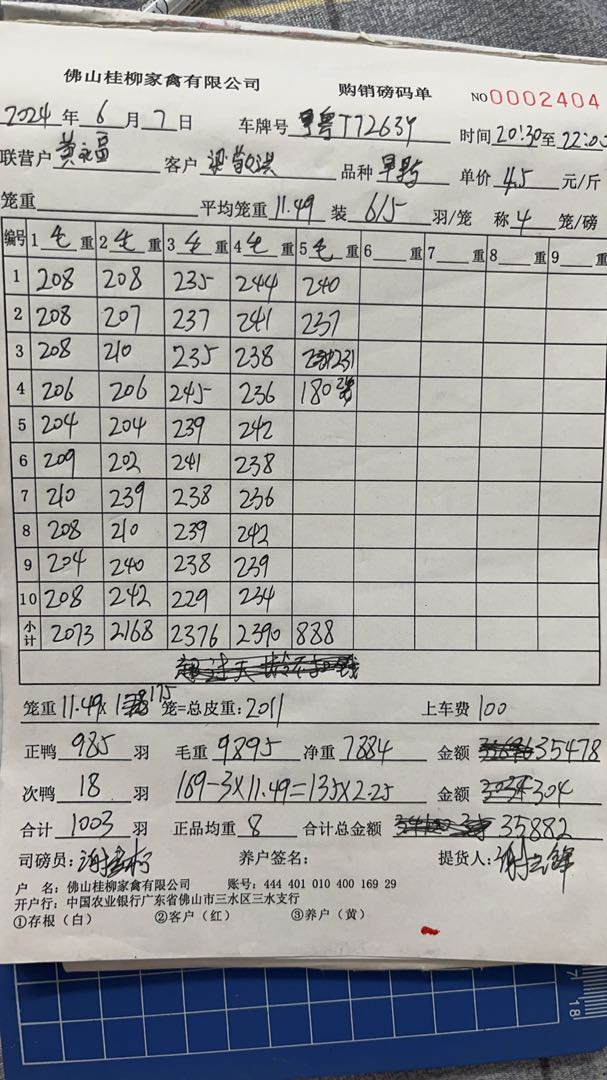 佛山桂柳家禽有限公司 购销磅码单 NO 0002404
2024 年 6 月 7 日 车牌号 粤T72639 时间 20:30 至 22:00
联营户 黄永富 客户 品种 单价 4.5 元/斤
笼重 平均笼重 11.49 装 6/5 羽/笼 称 4 笼/磅
编号 1 毛 重 2 毛 重 3 毛 重 4 毛 重 5 毛 重 6 重 7 重 8 重 9 重
1 208 208 235 244 240
2 208 207 237 241 237
3 208 210 235 238 231
4 206 206 245 236 180
5 204 204 239 242
6 209 202 241 238
7 210 239 238 236
8 208 210 239 242
9 204 240 238 239
10 208 242 229 234
小计 2073 2168 2376 2390 888
笼重 11.49 × 175 笼=总皮重: 2011 上车费 100
正鸭 985 羽 毛重 9895 净重 7884 金额 35478
次鸭 18 羽 169-3×11.49=135×2.25 金额 304
合计 1003 羽 正品均重 8 合计总金额 35882
司磅员: 养户签名: 提货人:
户 名: 佛山桂柳家禽有限公司 账号: 444 401 010 400 169 29
开户行: 中国农业银行广东省佛山市三水区三水支行
①存根（白） ②客户（红） ③养户（黄）
17
18